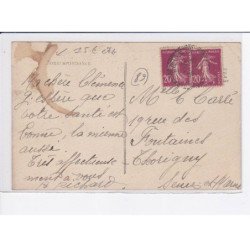 CORRESPONDANCE
Ma chère Clémence
J'espère que
votre santé est
bonne, la mienne
aussi.
Très affectueuse
ment à vous
Richard
(83)
Melle C Carlé
19 rue des
Fontaines
Thorigny
Seine et Marne
20
20